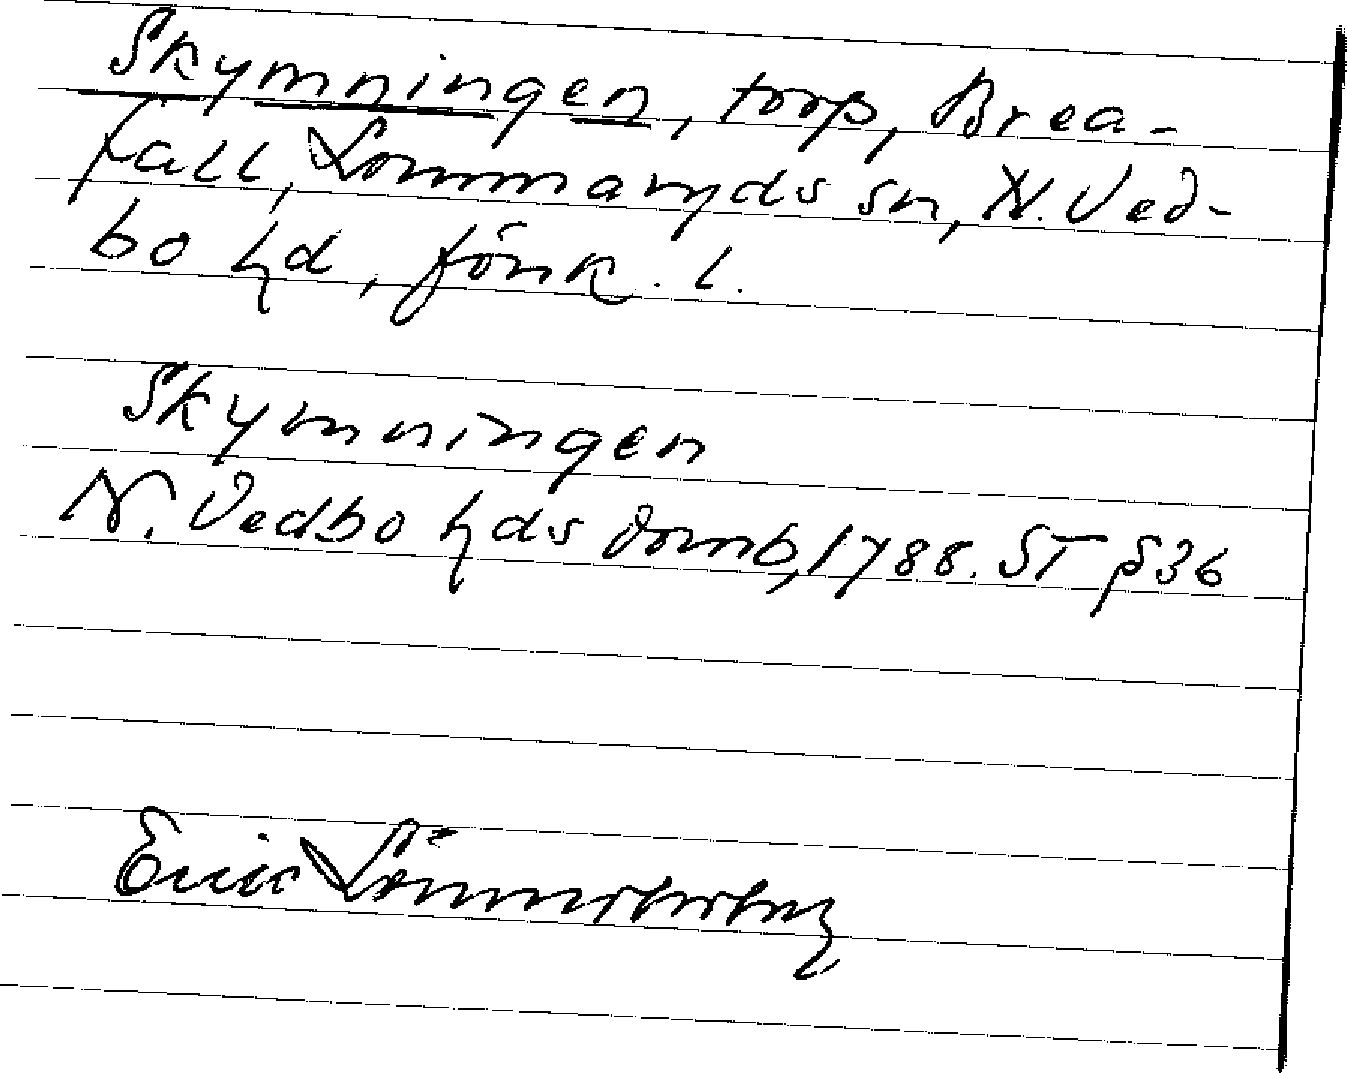 Skymningen, torp, Brea-
fall, Lommaryds sn, N. Ved-
bo hd, Jönk. l.
Skymningen
N. Vedbo hds domb, 1788. ST § 36
Erik